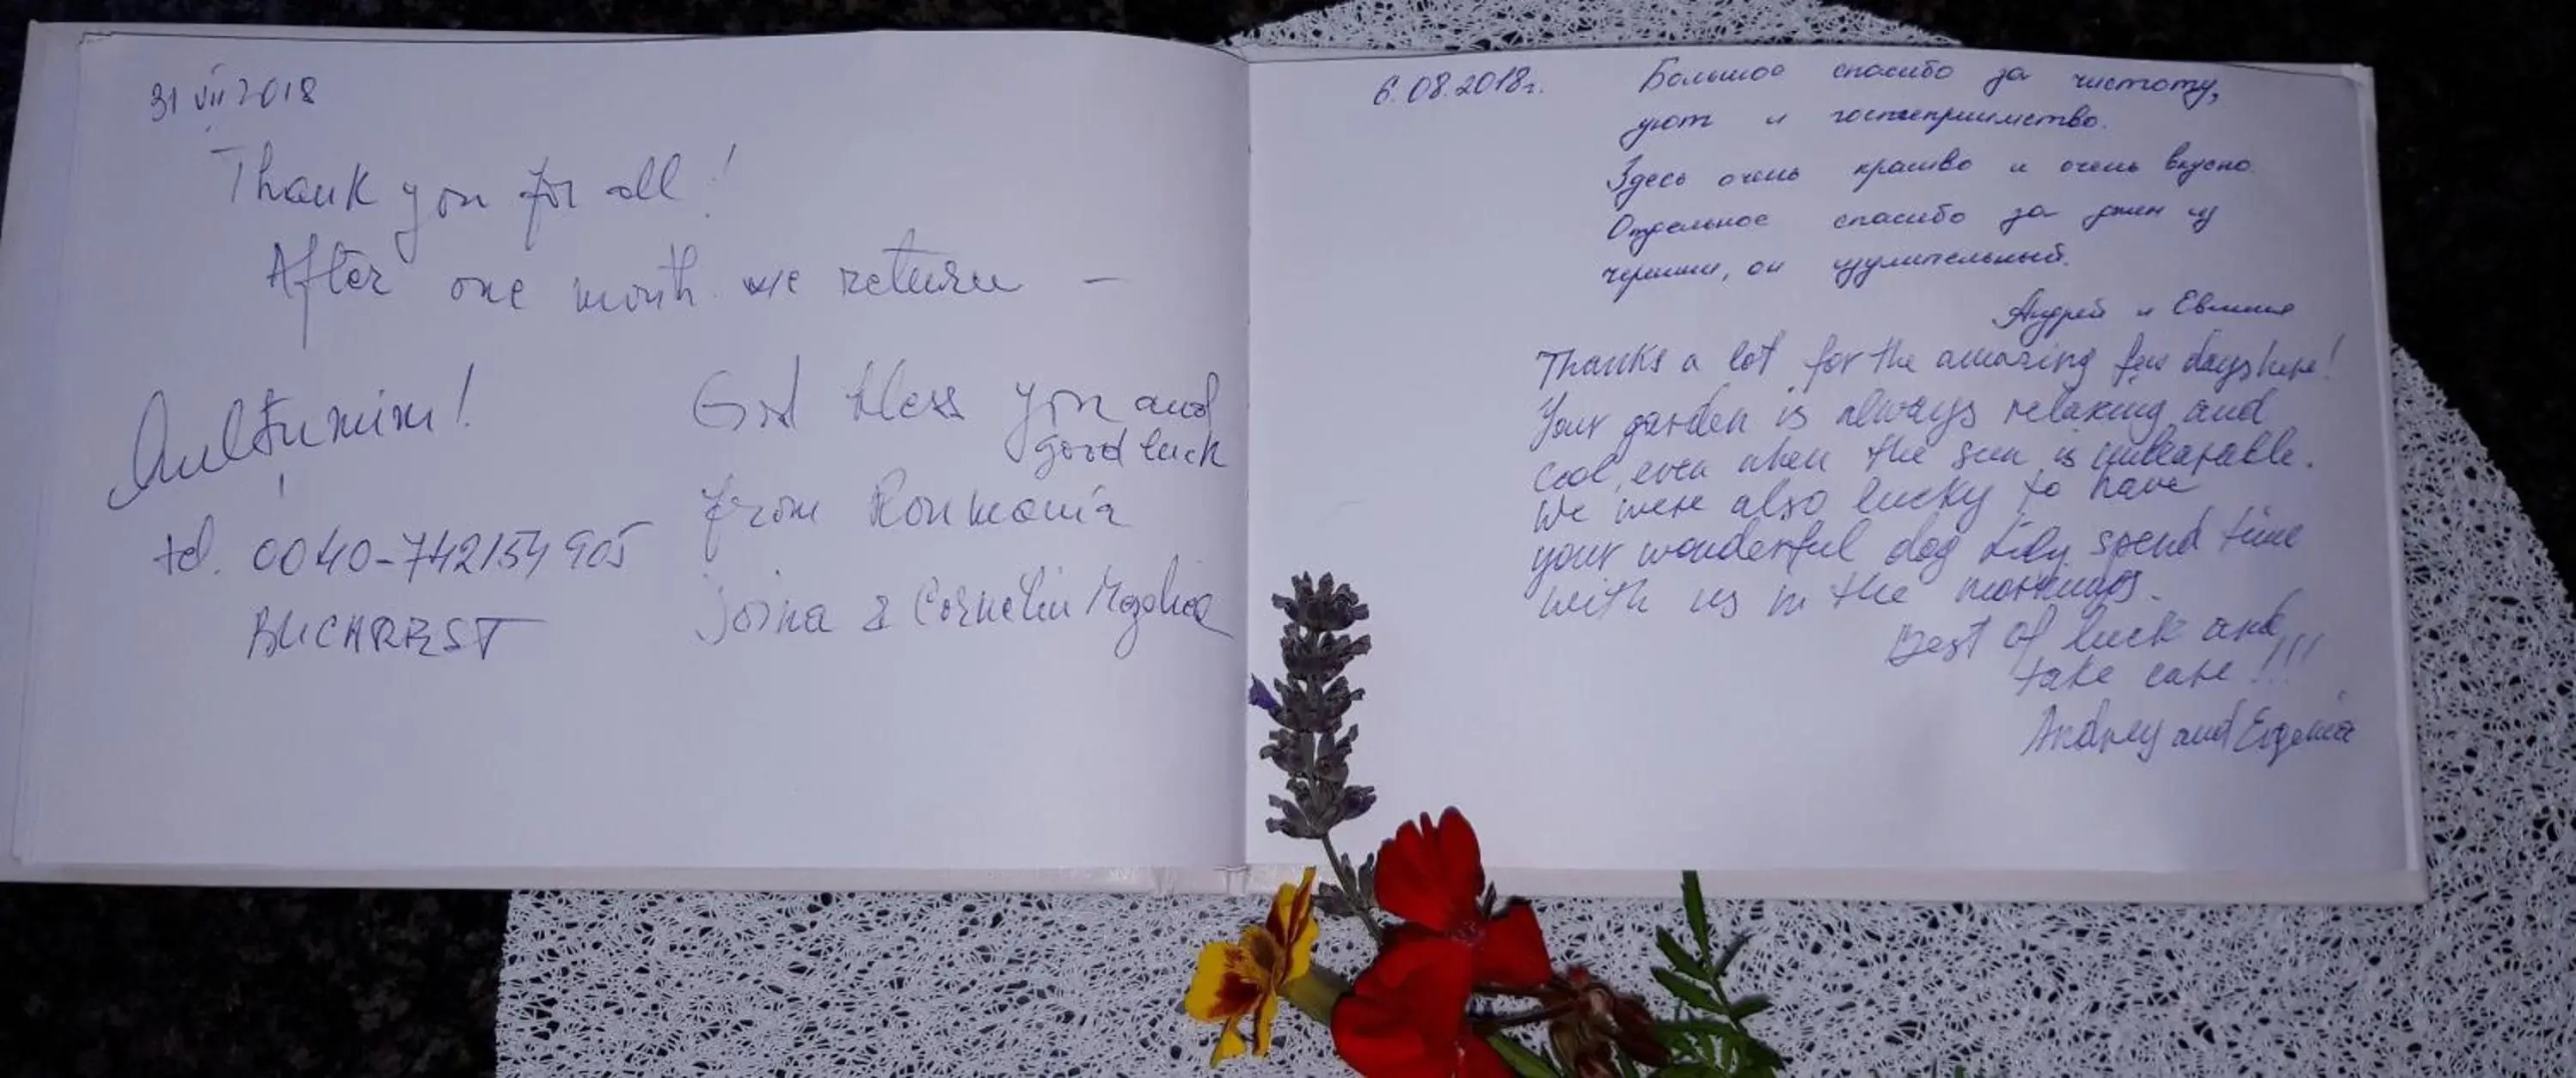 31 VII 2018
Thank you for all!
After one month we return –
Multumim!
God bless you and
good luck
from Roumania
tel. 0040-742154905
BUCHAREST
& Corneliu
6.08.2018г.
Большое спасибо за чистоту,
уют и гостеприимство.
Здесь очень красиво и очень вкусно.
Отдельное спасибо за джем из
черешни, он изумительный.
Андрей и Евгения
Thanks a lot for the amazing few days here!
Your garden is always relaxing and
cool, even when the sun is unbearable.
We were also lucky to have
your wonderful dog Lily spend time
with us in the mornings.
Best of luck and
take care!!!
Andrey and Evgenia